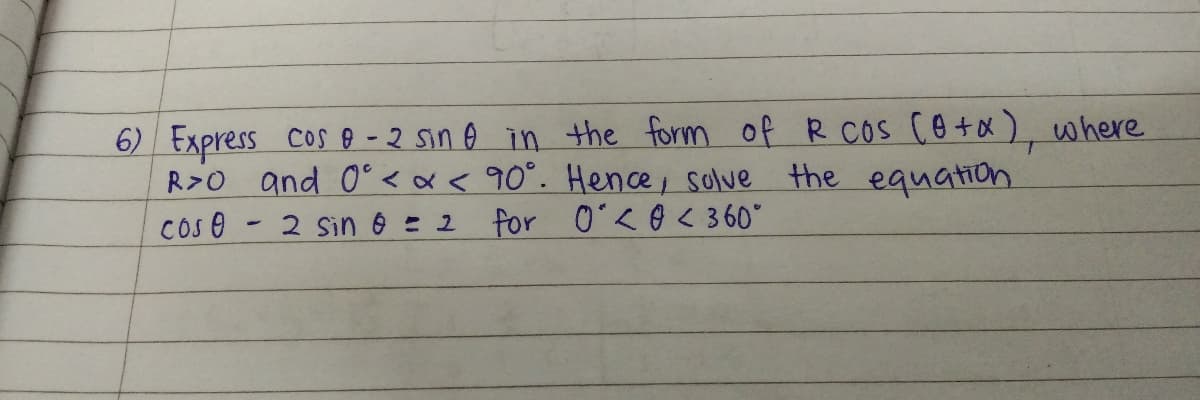 6) Express cos θ - 2 sin θ in the form of R cos (θ+α), where
R>0 and 0° < α < 90°. Hence, solve the equation
cos θ - 2 sin θ = 2 for 0° < θ < 360°